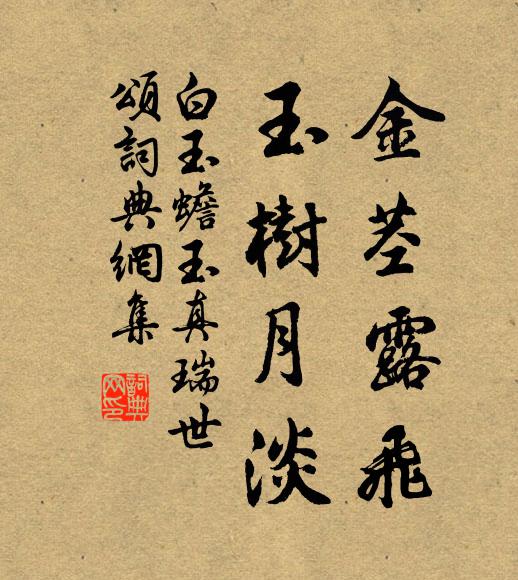 金茎露飛
玉樹月淡
白玉蟾玉真瑞世
頌詞典網集
詞典網印